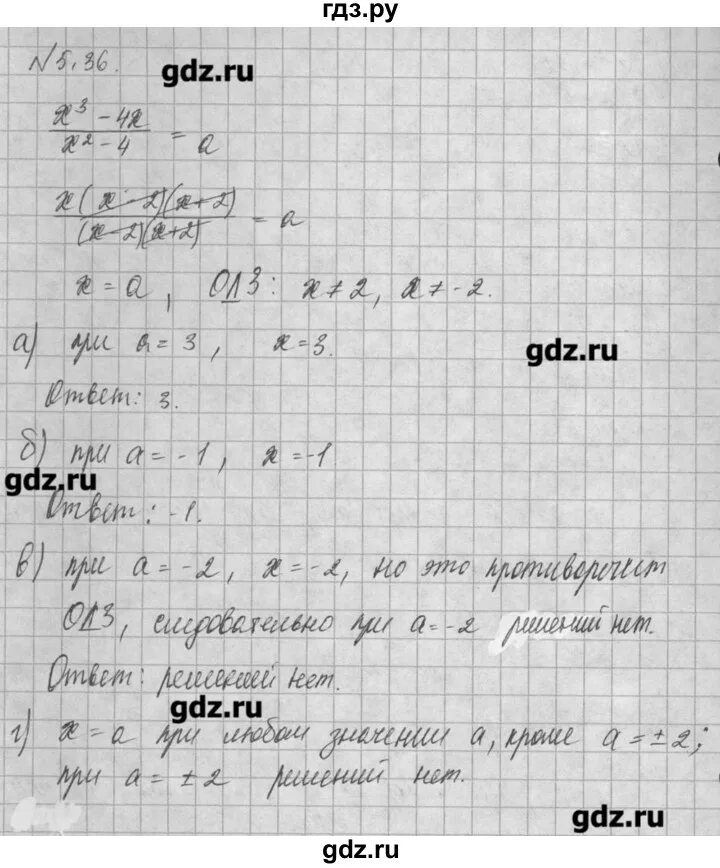 гдз.ру
№5.36.
gdz.ru
x³ - 4x / x² - 4 = a
x(x-2)(x+2) / (x-2)(x+2) = a
x = a, ОДЗ: x ≠ 2, x ≠ -2.
а) при a = 3, x = 3.
gdz.ru
Ответ: 3.
б) при a = -1, x = -1.
gdz.ru
Ответ: -1.
в) при a = -2, x = -2, но это противоречит
ОДЗ, следовательно при a = -2 решений нет.
Ответ: решений нет.
gdz.ru
г) x = a при любом значении a, кроме a = ± 2;
при a = ± 2 решений нет.
gdz.ru
gdz.ru